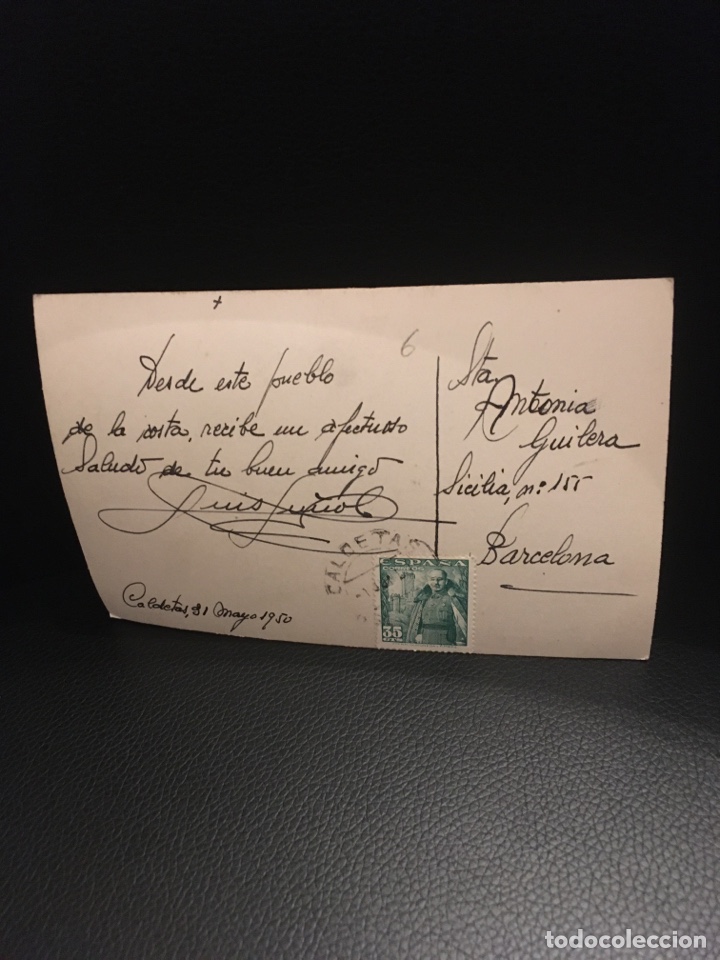 +
6
Desde este pueblo
de la costa, recibe un afectuoso
Saludo de tu buen amigo
Luis
Caldetas, 31 Mayo 1950
Sta.
Antonia
Guilera
Sicilia, nº 155
Barcelona
CALDETAS
ESPAÑA
35
todocoleccion
todocoleccion.net